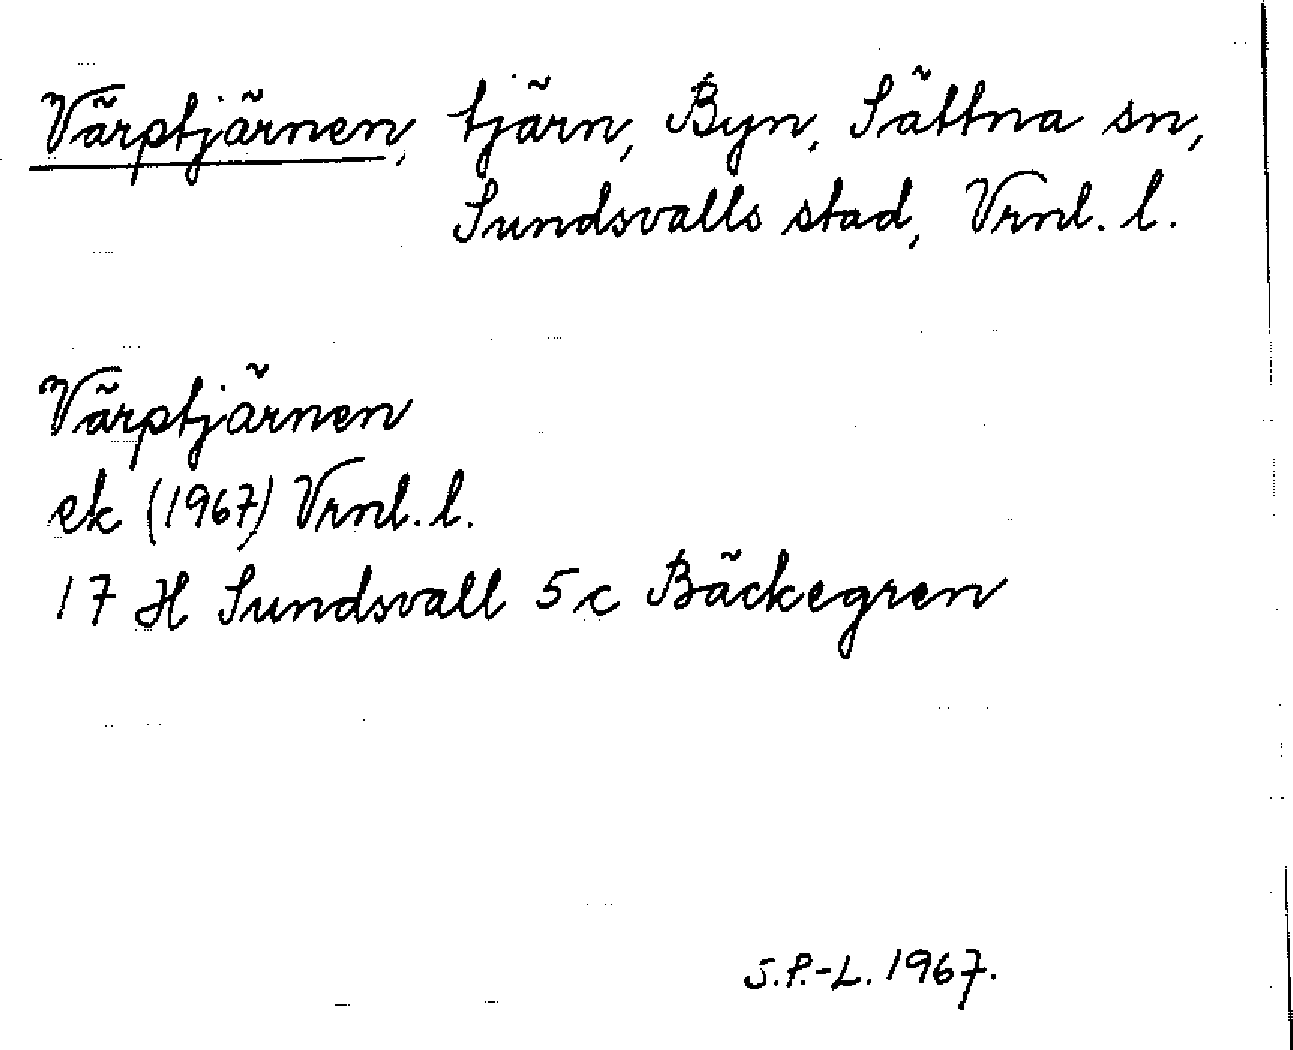 Värptjärnen, tjärn, Byn, Sättna sn,
Sundsvalls stad, Vrnl. l.
Värptjärnen
ek (1967) Vrnl. l.
17 H Sundsvall 5 c Bäckegren
S.P.-L. 1967.